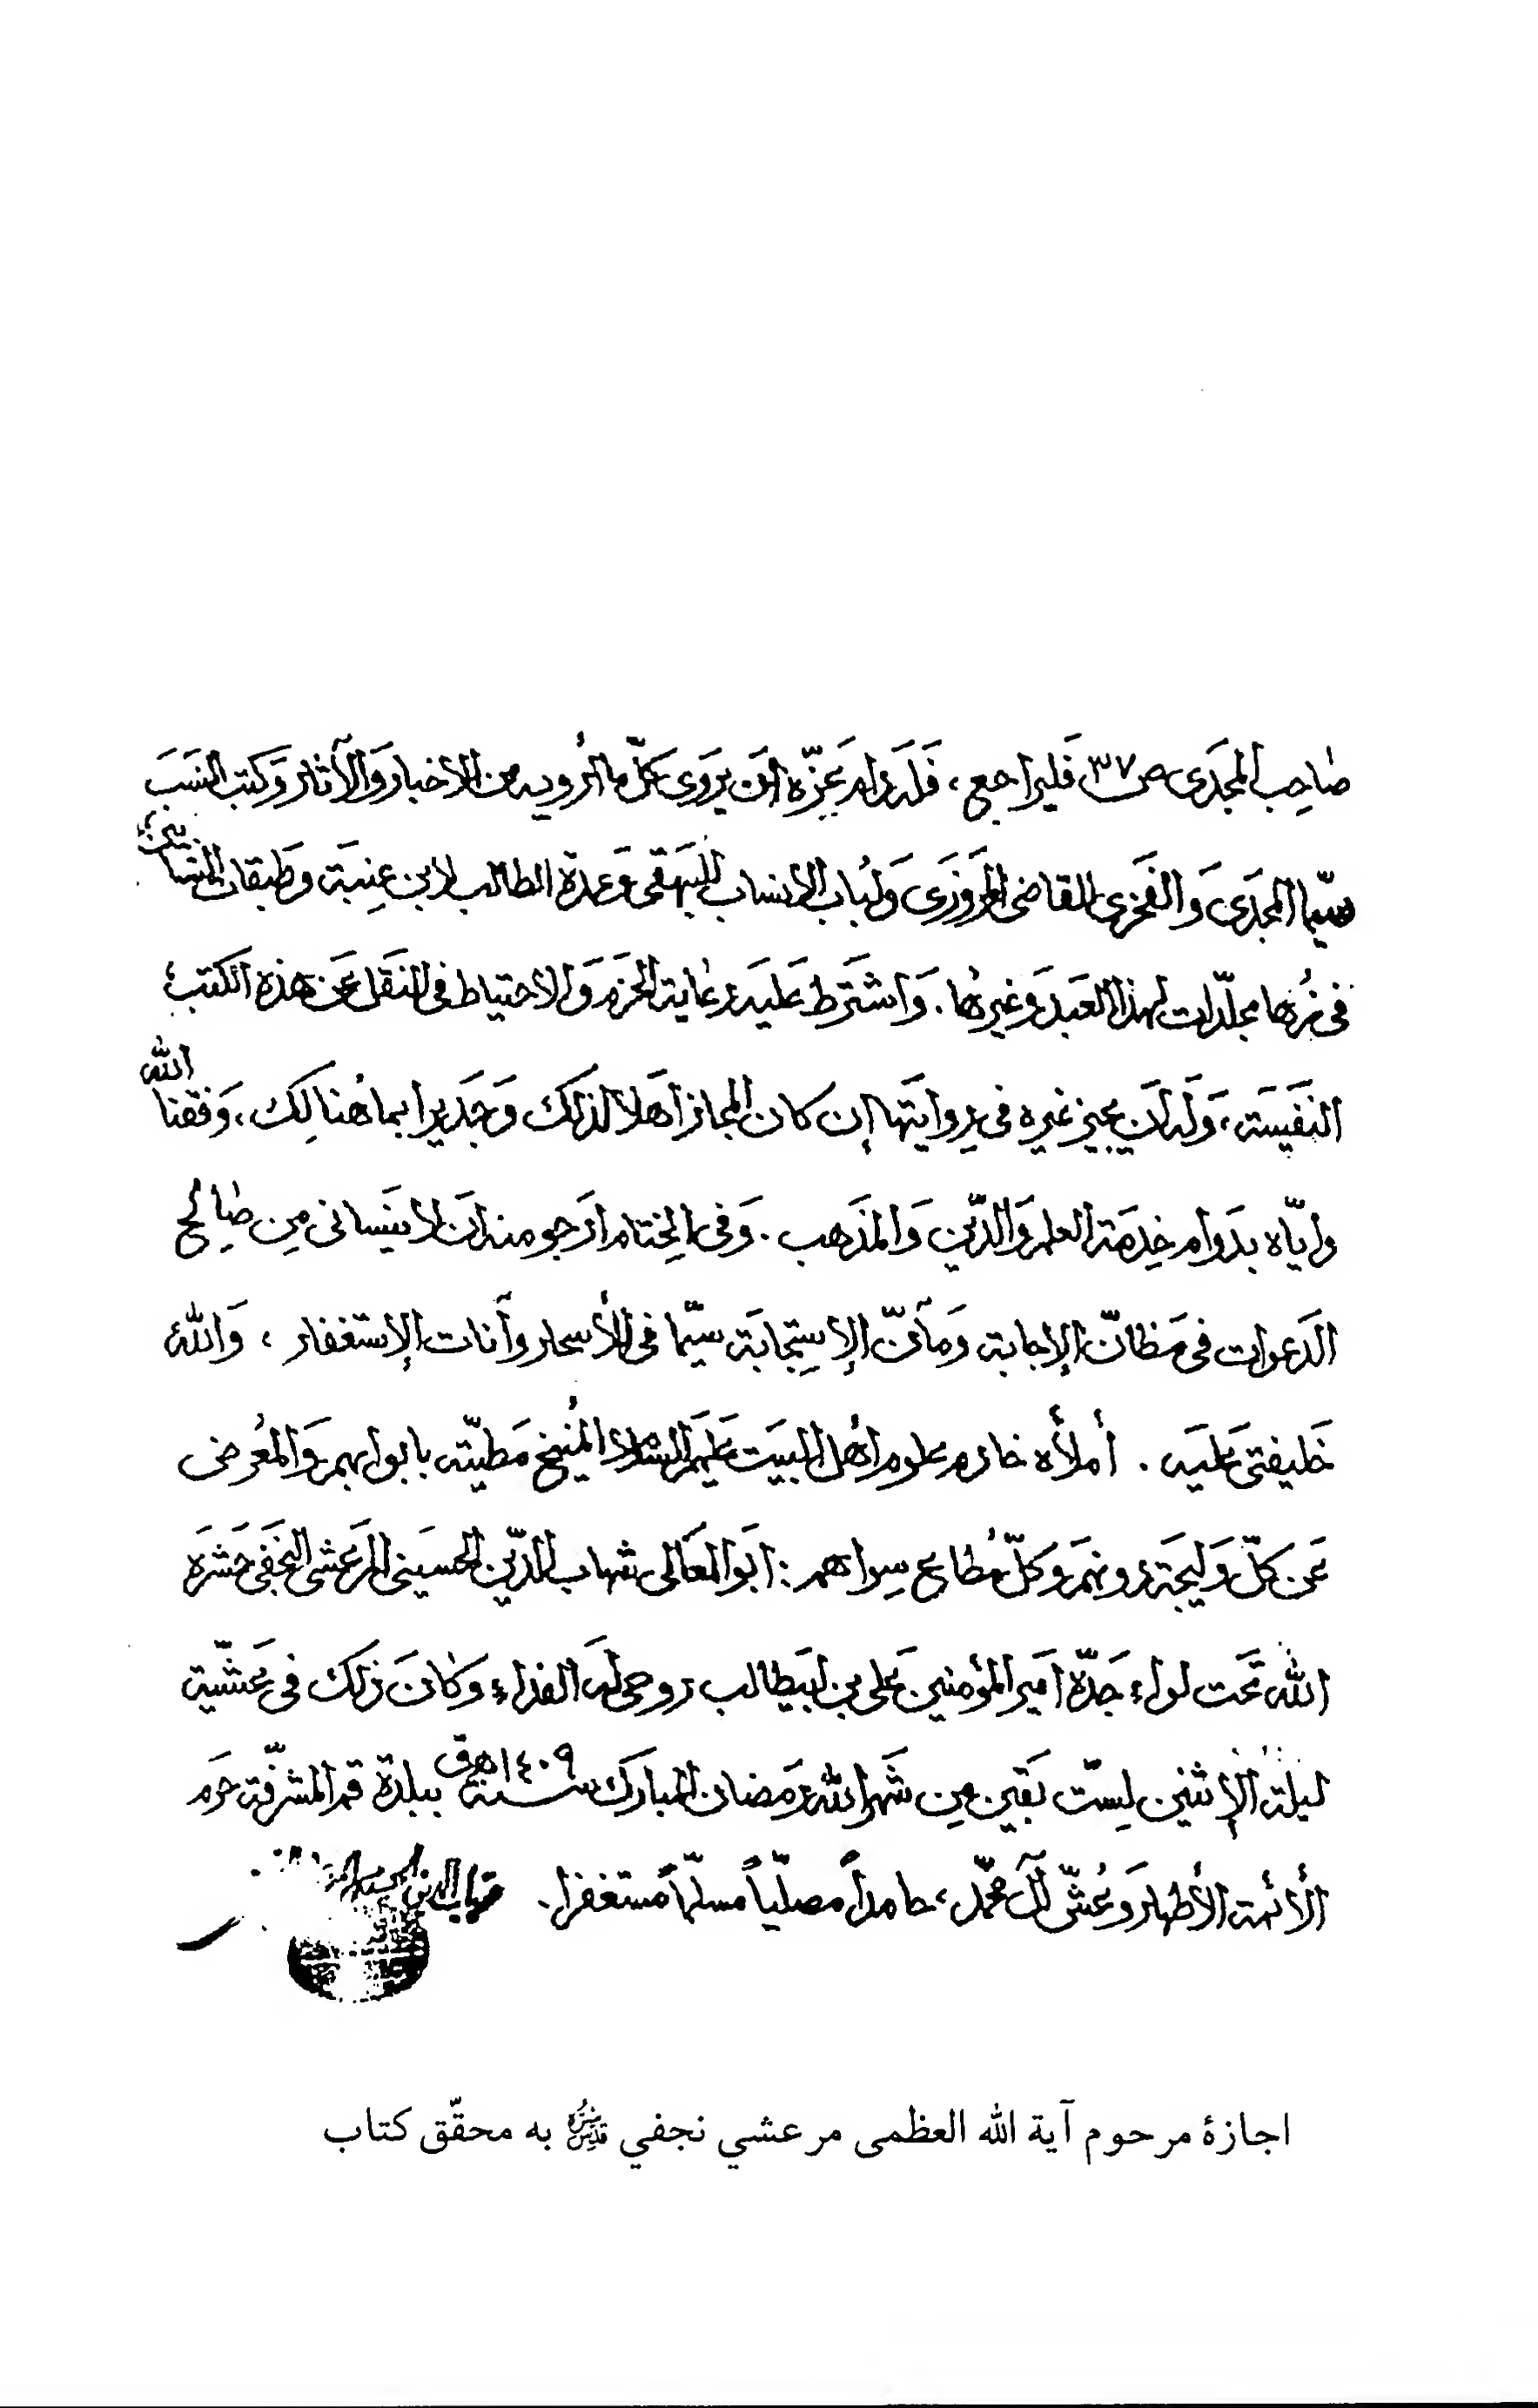 صاحب المجدی ص ٣٧ فليراجع، فَلَه دام عِزّه اَن يروی كلّ ما أرويه من الاخبار وَالآثار وَكتب النسَب
سيّما المجدی وَالفخری للقاضی المروزی وَلُباب الأنساب للبيهقی وَعمدة الطالب لابن عِنبَة وطبقات النسّابين
فی نُزُها مجلّدات لهذا العَبد وَغيرها. وَاشترط عَليه رعاية الحزم وَالاحتياط فی النقل عَن هذه الكتب
النفيسَة، وَله اَن يجيز غيره فی رِوايتها إن كان المجاز اَهلا لذلك وَجديرا بما هُنالِك، وَفّقنا الله
وايّاه بدَوام خِدمَة العلم وَالدّين وَالمذهب. وَفی الخِتام ارجو منه اَن لا ينسانی مِن صالِح
الدَعوات فی مَظانّ الإجابة وَمآنّ الإستِجابَة سيّما فی الأسحار وآنات الإستغفار، وَالله
خَليفتی عَليه. أملأه خادم علوم اهل البيَت عَليهم السلام المُنيخ مَطيّته بابوابهم وَالمُعرض
عَن كلّ وَليجَة دونهم وَكلّ مُطاع سِواهم: ابوَ المعَالی شهاب الدّين الحسيَنی المرعَشی النجَفی حَشَرَه
الله تحَت لواء جَدّه اميَر المؤمنين عَلی بن ابيطالب روحی لَه الفداء وَكانَ ذلك فی عَشيّة
ليلة الإثنين لِستّ بَقَين مِن شَهر الله رَمَضان المبارَك سنة ١٤٠٩ هق ببلدة قم المشرّفة حَرَم
الأئمة الأطهار وَعُشّ آل محمّد، حامداً مصلّياً مسلّماً مستغفرا. شهاب الدين الحسينی
اجازهٔ مرحوم آية الله العظمى مرعشي نجفي قدّس سرّه به محقّق كتاب